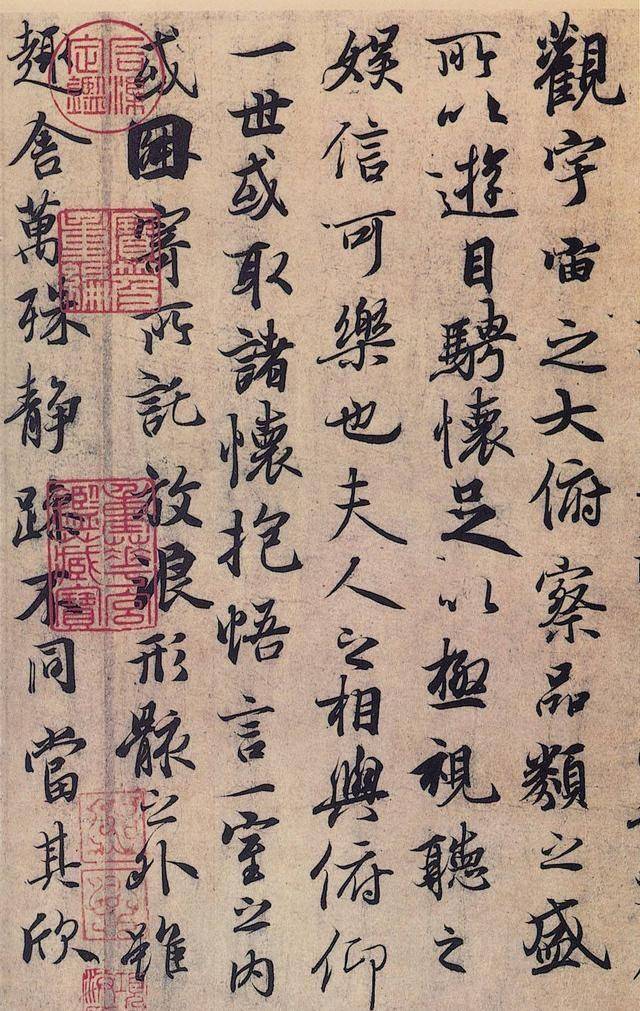 觀宇宙之大俯察品類之盛
所以遊目騁懷足以極視聽之
娛信可樂也夫人之相與俯仰
一世或取諸懷抱悟言一室之內
或因寄所託放浪形骸之外雖
趣舍萬殊静躁不同當其欣
石渠定鑑
寶笈重編
重華宮鑑藏寶